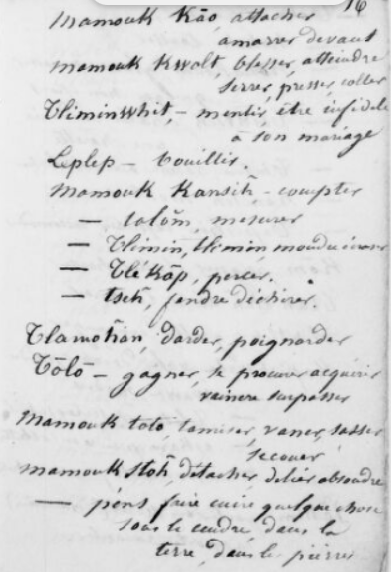 16
mamouk Kāo, attacher
amarrer devant
mamouk Kwolt, blesser, atteindre
serrer, presser, coller
Tliminwhit, - mentir, être infidele
à son mariage
Leplep - bouillir.
Mamouk Kansih - compter
— tolōm, mesurer
— Tlimin, tlimin, moudre
— Tlékōp, percer.
— tseh, fendre déchirer.
Tlamohan, darder, poignarder
Tōlō - gagner, se procurer acquérir
vaincre surpasser
Mamouk tolo, tamiser, vaner, sasser
secouer
mamouk stoh, détacher, délier absoudre
— pens faire cuire quelque chose
sous le cendre, dans la
terre, dans les pierres